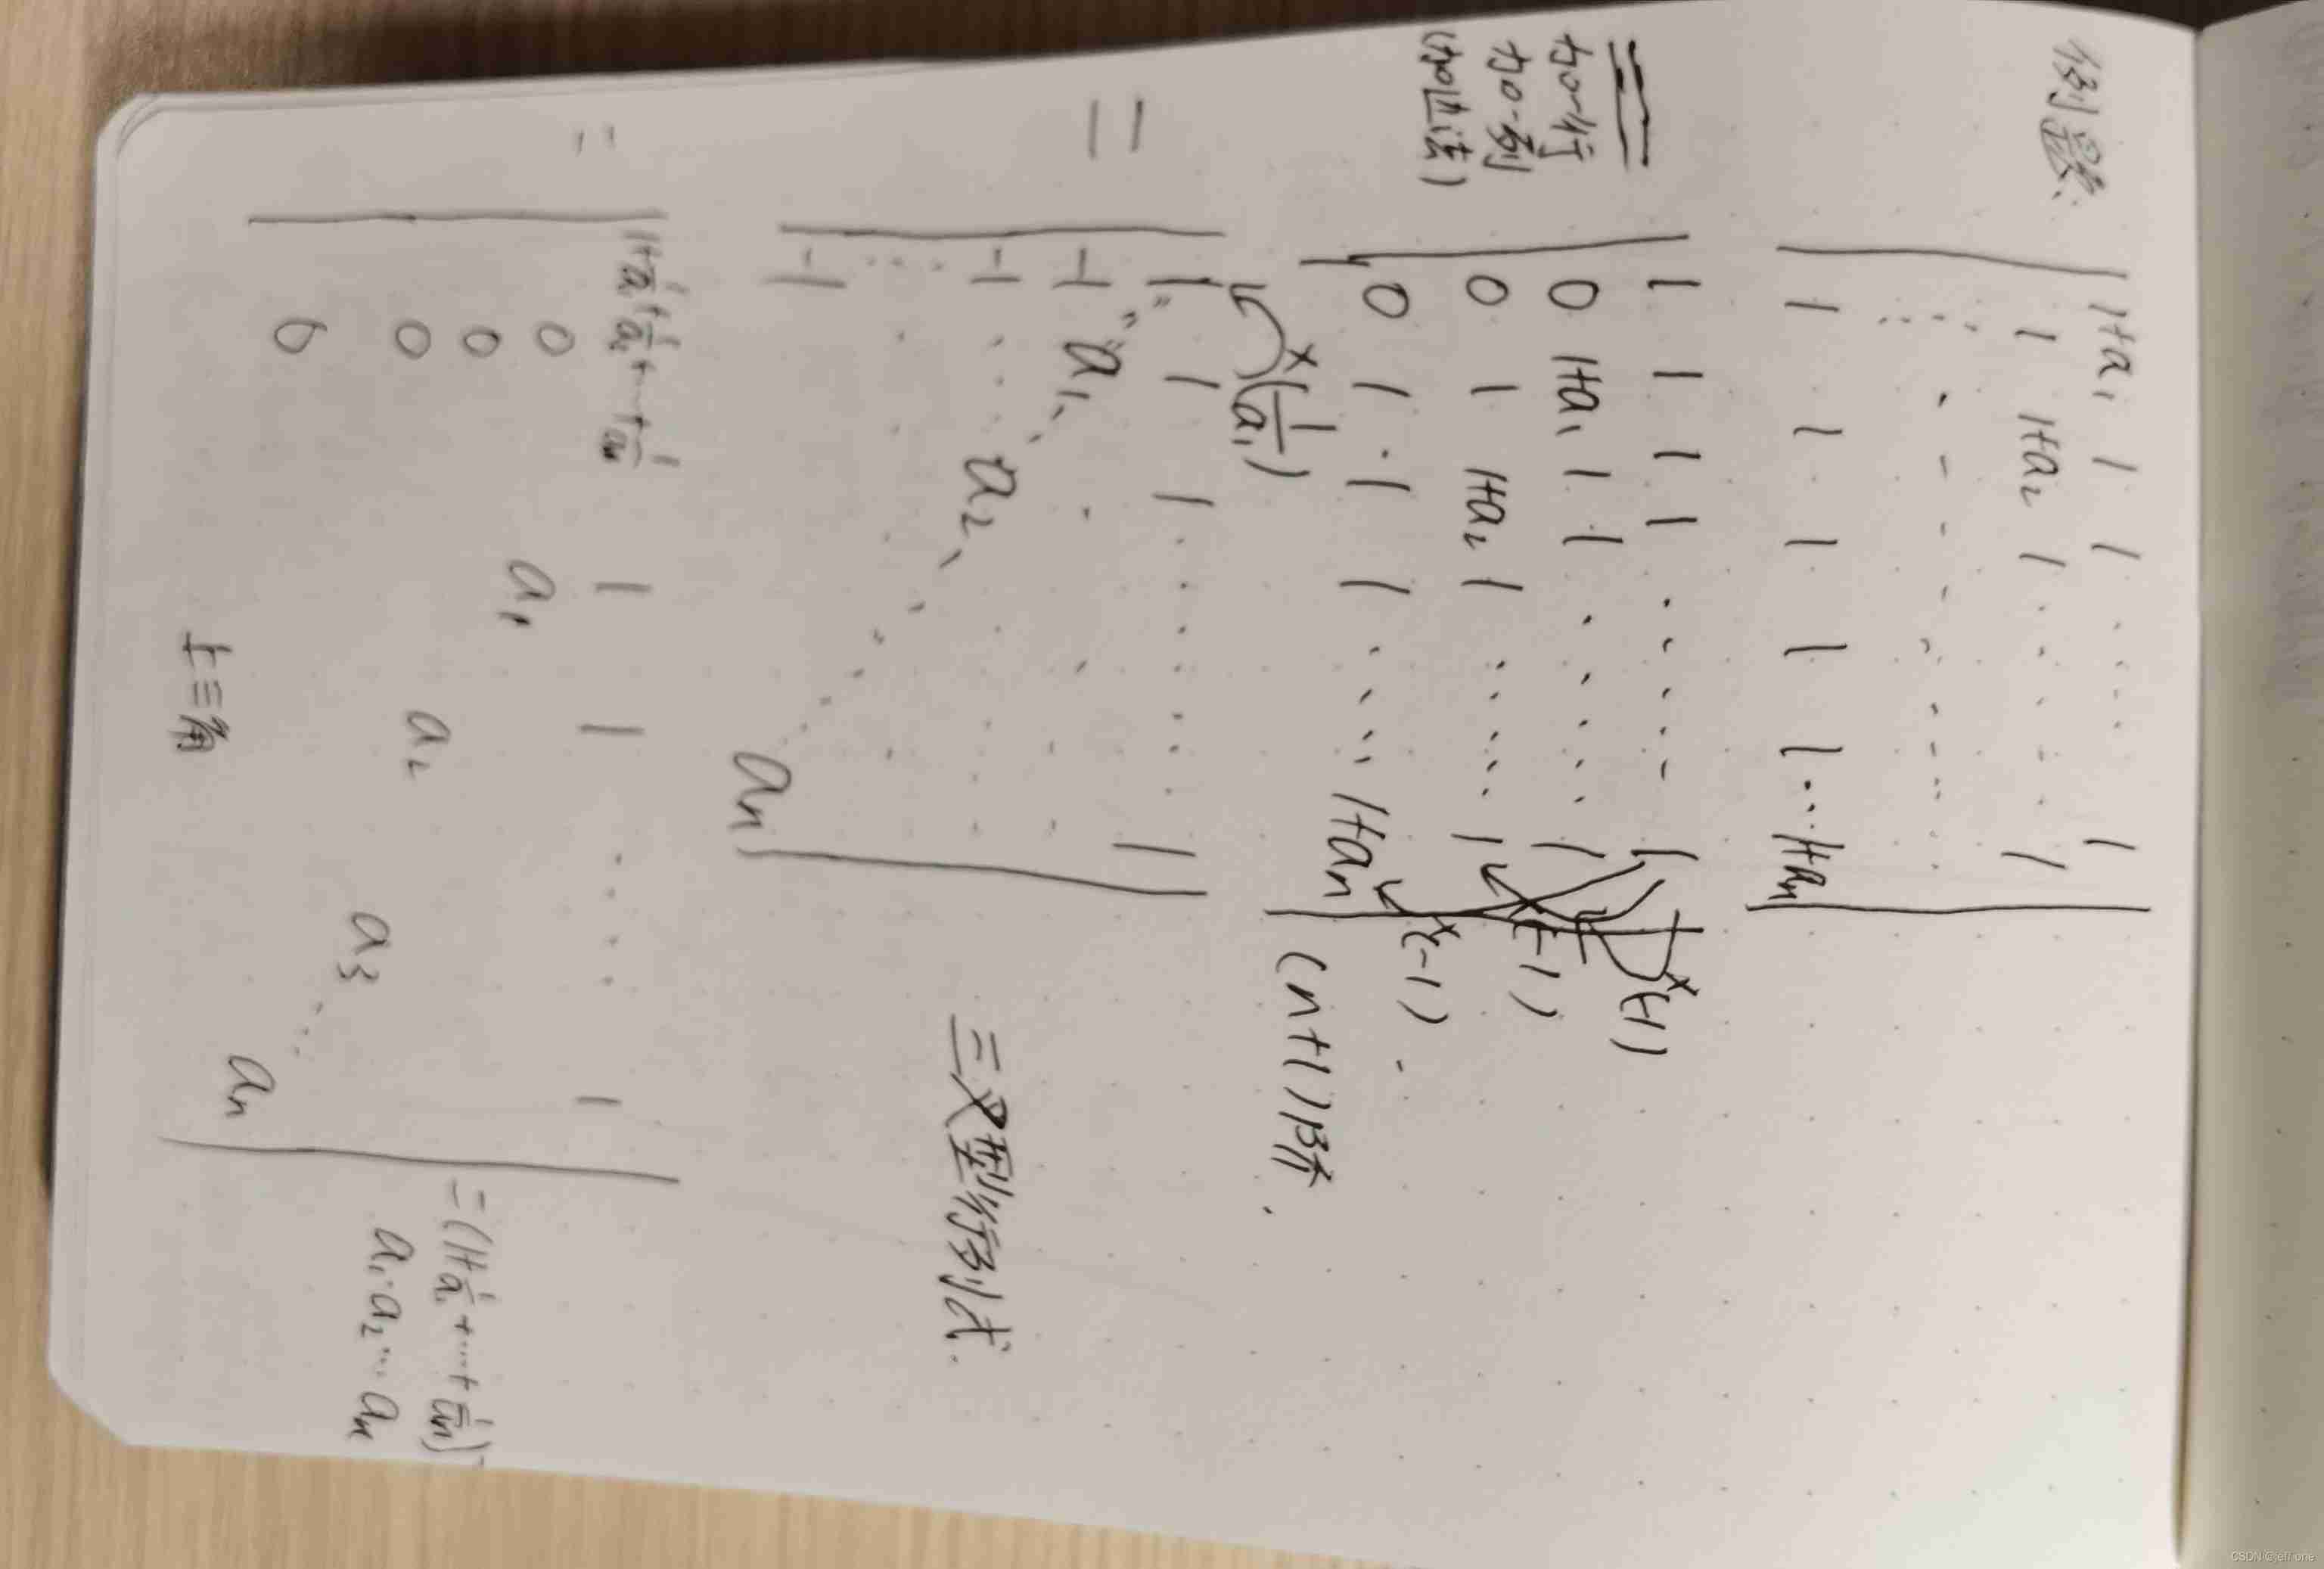 例题
1+a₁ 1 1 ⋯ 1
1 1+a₂ 1 ⋯ 1
⋯
1 1 1 1 1 ⋯ 1+aₙ
=
加一行
加一列
(加边法)
1 1 1 1 ⋯ 1
0 1+a₁ 1 1 ⋯ 1
0 1 1+a₂ 1 ⋯ 1
0 1 1 1 ⋯ 1+aₙ
×(-1)
(-1)
×(-1)
(n+1)阶.
×(1/a₁)
=
1 1 1 ⋯ 1
-1 a₁
-1 a₂
⋮ ⋱
-1 aₙ
三叉型行列式.
=
1+1/a₁+1/a₂+⋯+1/aₙ 1 1 ⋯ 1
0 a₁
0 a₂
0 a₃
0 aₙ
上三角
=(1+1/a₁+⋯+1/aₙ)·
a₁·a₂⋯aₙ
CSDN @jeff one